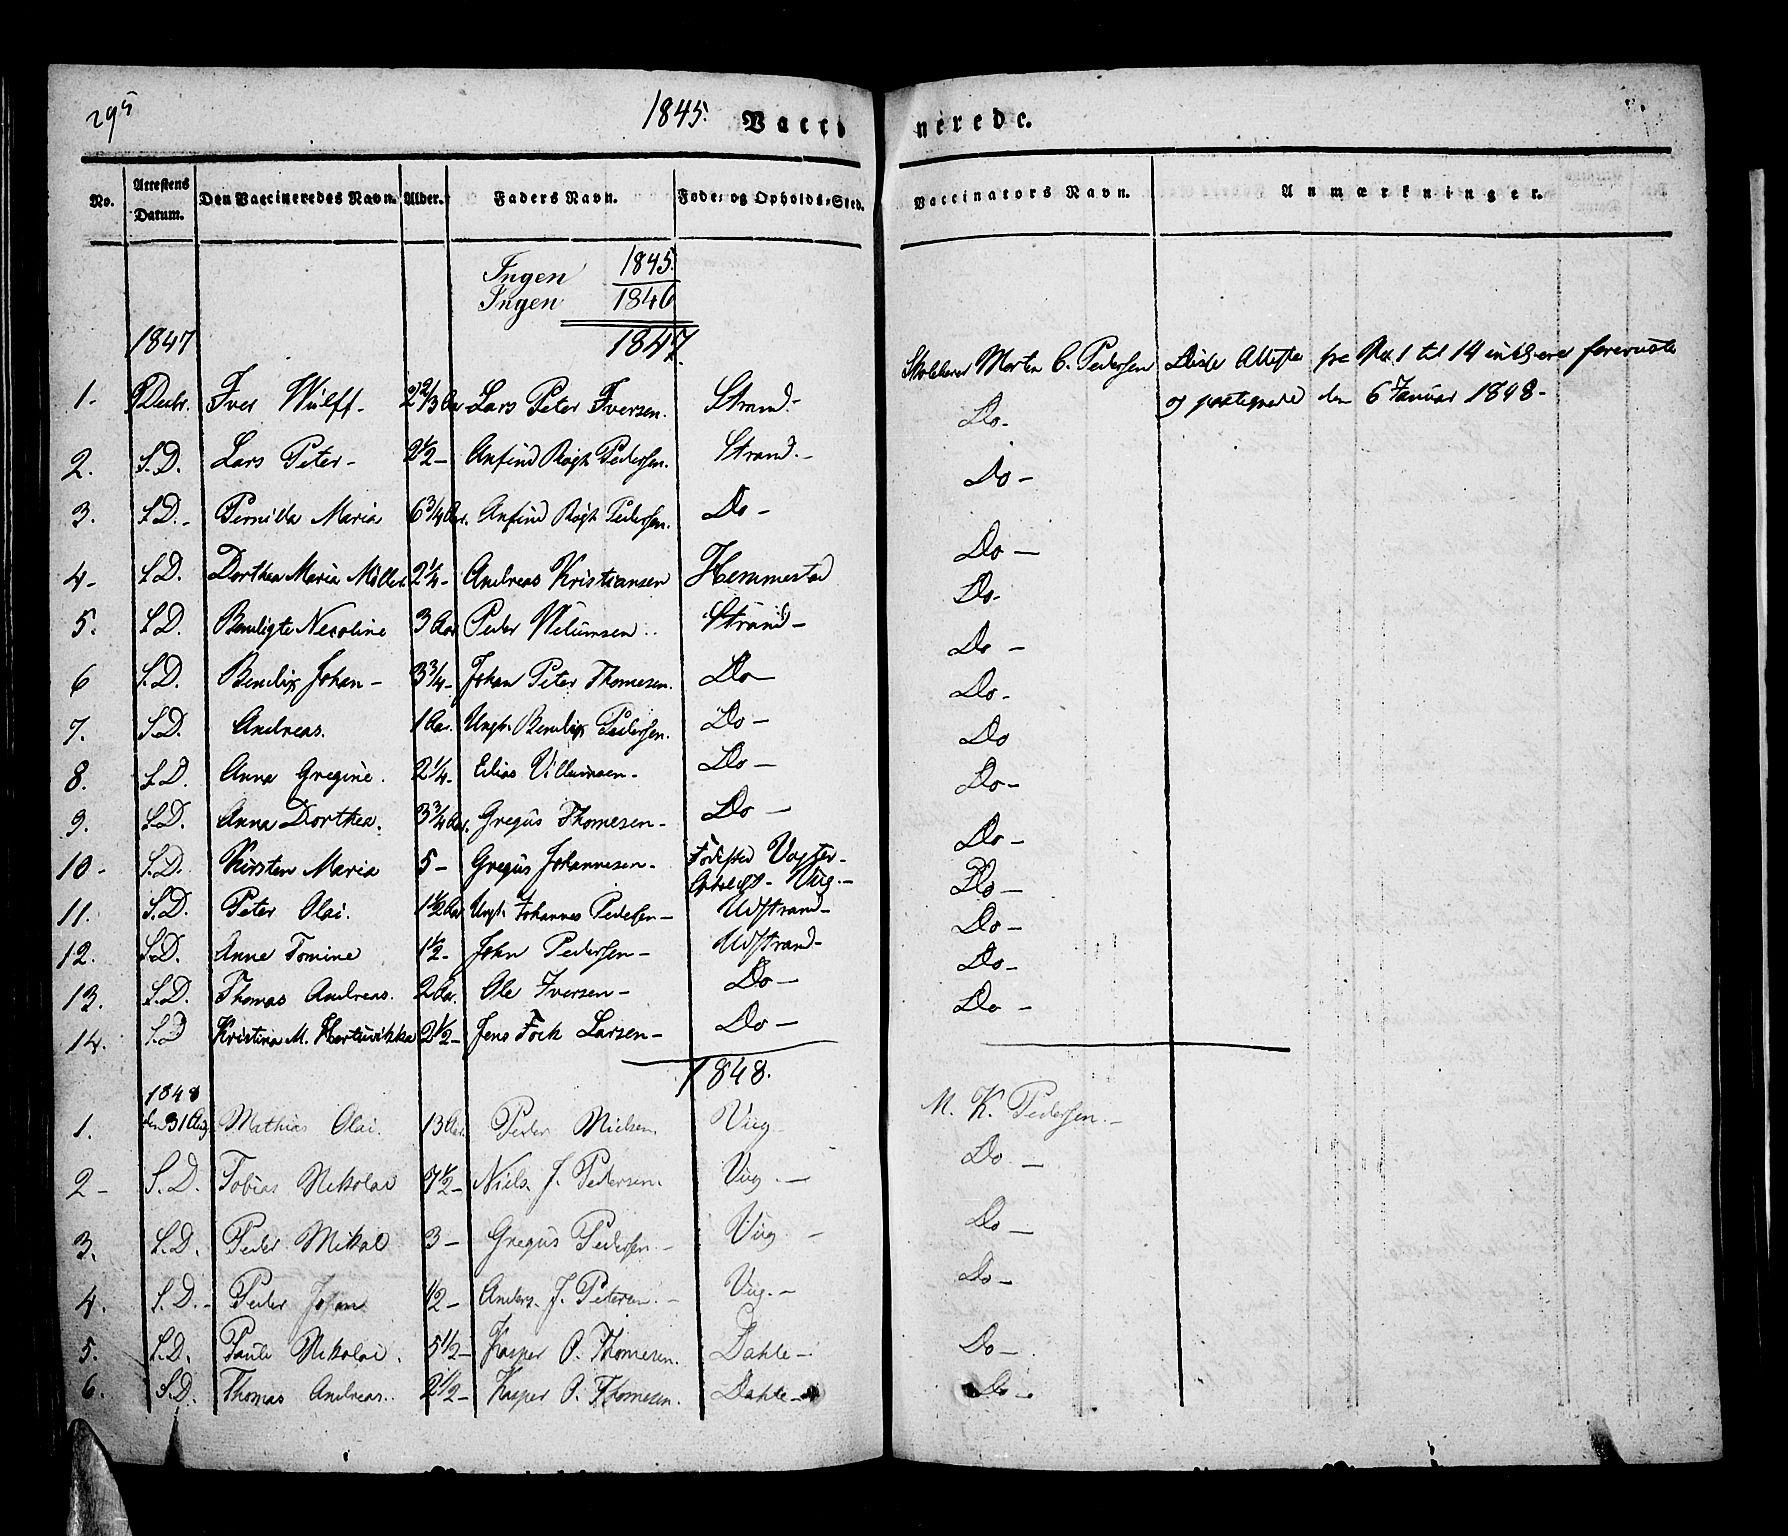 295
1845. Vacci nerede.
No. Attestens Datum. Den Vaccineredes Navn. Alder. Faders Navn. Føde- og Opholds-Sted. Vaccinators Navn. Anmærkninger.
Ingen 1845.
Ingen 1846
1847 1847.
1. Decbr. Iver Wulff. 2 2/3 Aar Lars Peter Iversen. Strand. Skolelærer Morten C. Pedersen Disse Atteste fra No. 1 til 14 ere foreviste
og den 6 Januar 1848.
Do.
2. S.D. Lars Peter 2 1/2 Anfind Pedersen. Strand. Do
3. S.D. Pernilla Maria 6 3/4 Aar. Anfind Pedersen. Do Do
4 S.D. Dorthea Maria Möller 2 1/4 Andreas Kristiansen Hemmestad Do.
5. S.D. Bendigte Nicoline 3 Aar Peder Wilumsen Strand Do
6 S.D. Bendix Johan 3 3/4 Johan Peter Thomesen. Do Do.
7. S.D. Andreas. 1 Aar. Ungk. Bendix Pedersen. Do Do
8. S.D. Anna Gregine. 2 1/4 Elias Villumsen Do Do
9. S.D. Anna Dorthea. 3 3/4 Aar. Gregus Thomesen Do Do
10 S.D. Kirsten Maria 5 Gregus Johannesen Fødested
Viig. Do
11. S.D. Peter Olai. 1 1/2 Aar Ungk. Johannes Pedersen Udstrand Do
12. S.D. Anne Tomine 1 1/2 John Pedersen Udstrand Do
13. S.D. Thomas Andreas. 2 Aar. Ole Iversen Do Do
14. S.D Kristina M. 2 1/2 Jens Foch Larsen Do
1848.
1848
1. den 31 Aug Mathias Olai. 13 Aar. Peder Nielsen. Viig M. K. Pedersen.
2 S.D. Tobias Nikolai 7 1/2 Niels. J. Pedersen. Viig. Do
3. S.D. Peder Mikal 3 Gregus Pedersen Viig Do
4. S.D. Peder Johan 1/2 Anders. J. Petersen. Viig. Do
5. S.D. Paul Nikolai. 5 1/2 Kasper P. Thomesen. Dahle Do
6. S.D. Thomas Andreas. 2 1/2 Kasper P. Thomesen. Dahle Do